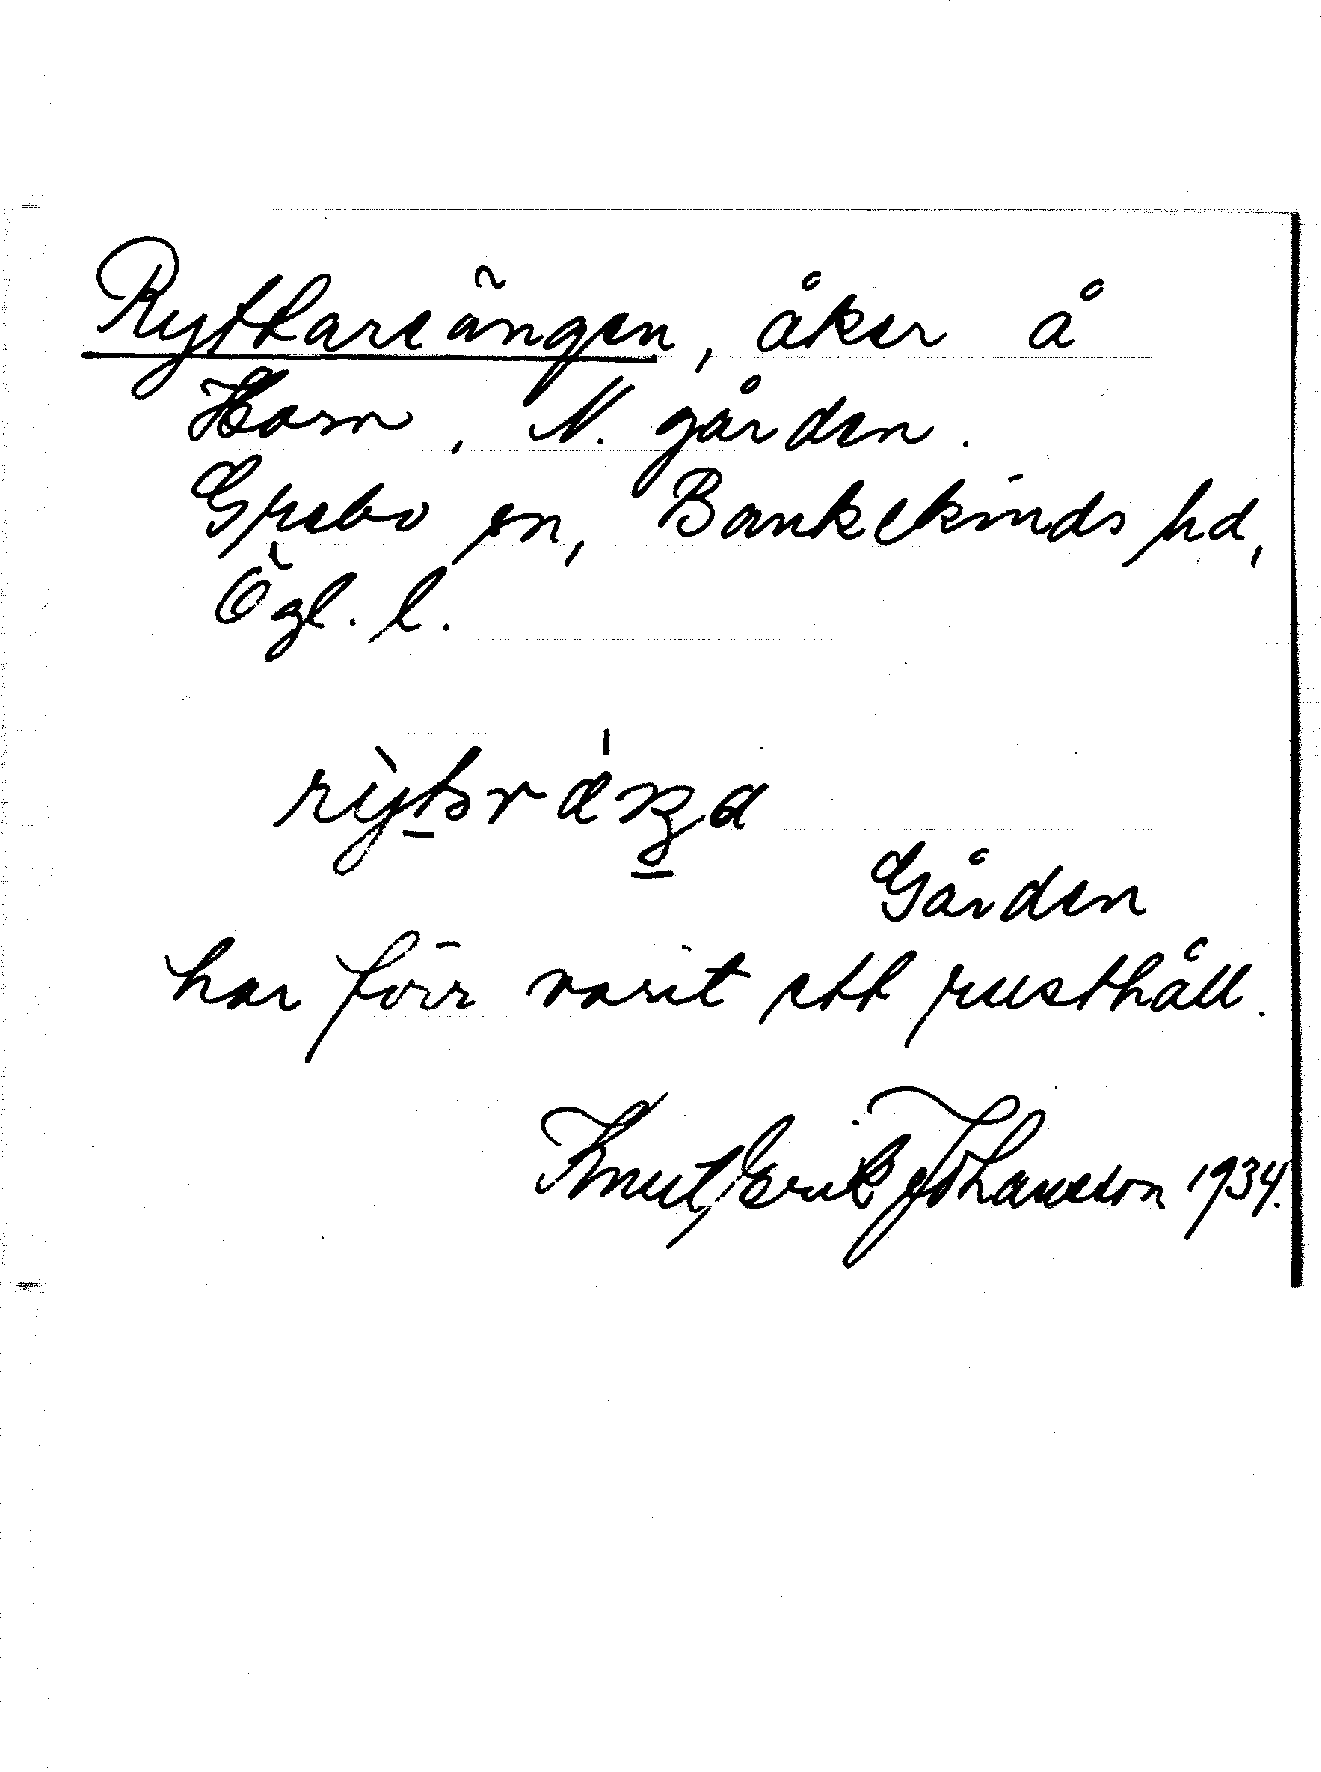 Ryttareängen, åker å
Horn, N. gården.
Grebo sn, Bankekinds hd,
Ögl. l.
Gården
har förr varit ett rusthåll.
Knut Erik Johansson 1934.